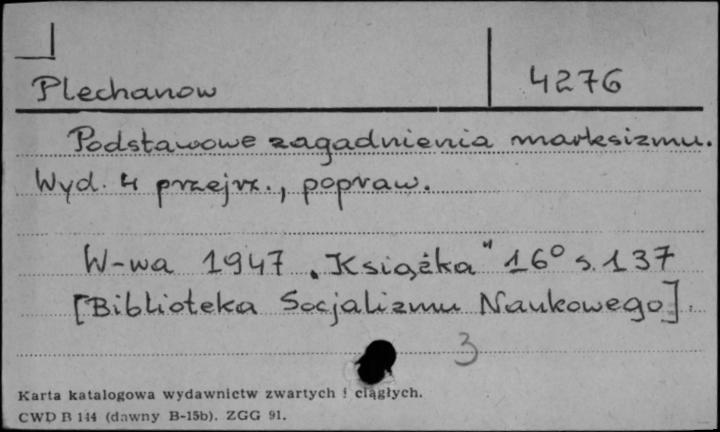 Plechanow 4276
Podstawowe zagadnienia marksizmu.
Wyd. 4 przejrz., popraw.
W-wa 1947 „Książka" 16° s. 137
[Biblioteka Socjalizmu Naukowego].
3
Karta katalogowa wydawnictw zwartych i ciągłych.
CWD B 144 (dawny B-15b). ZGG 91.